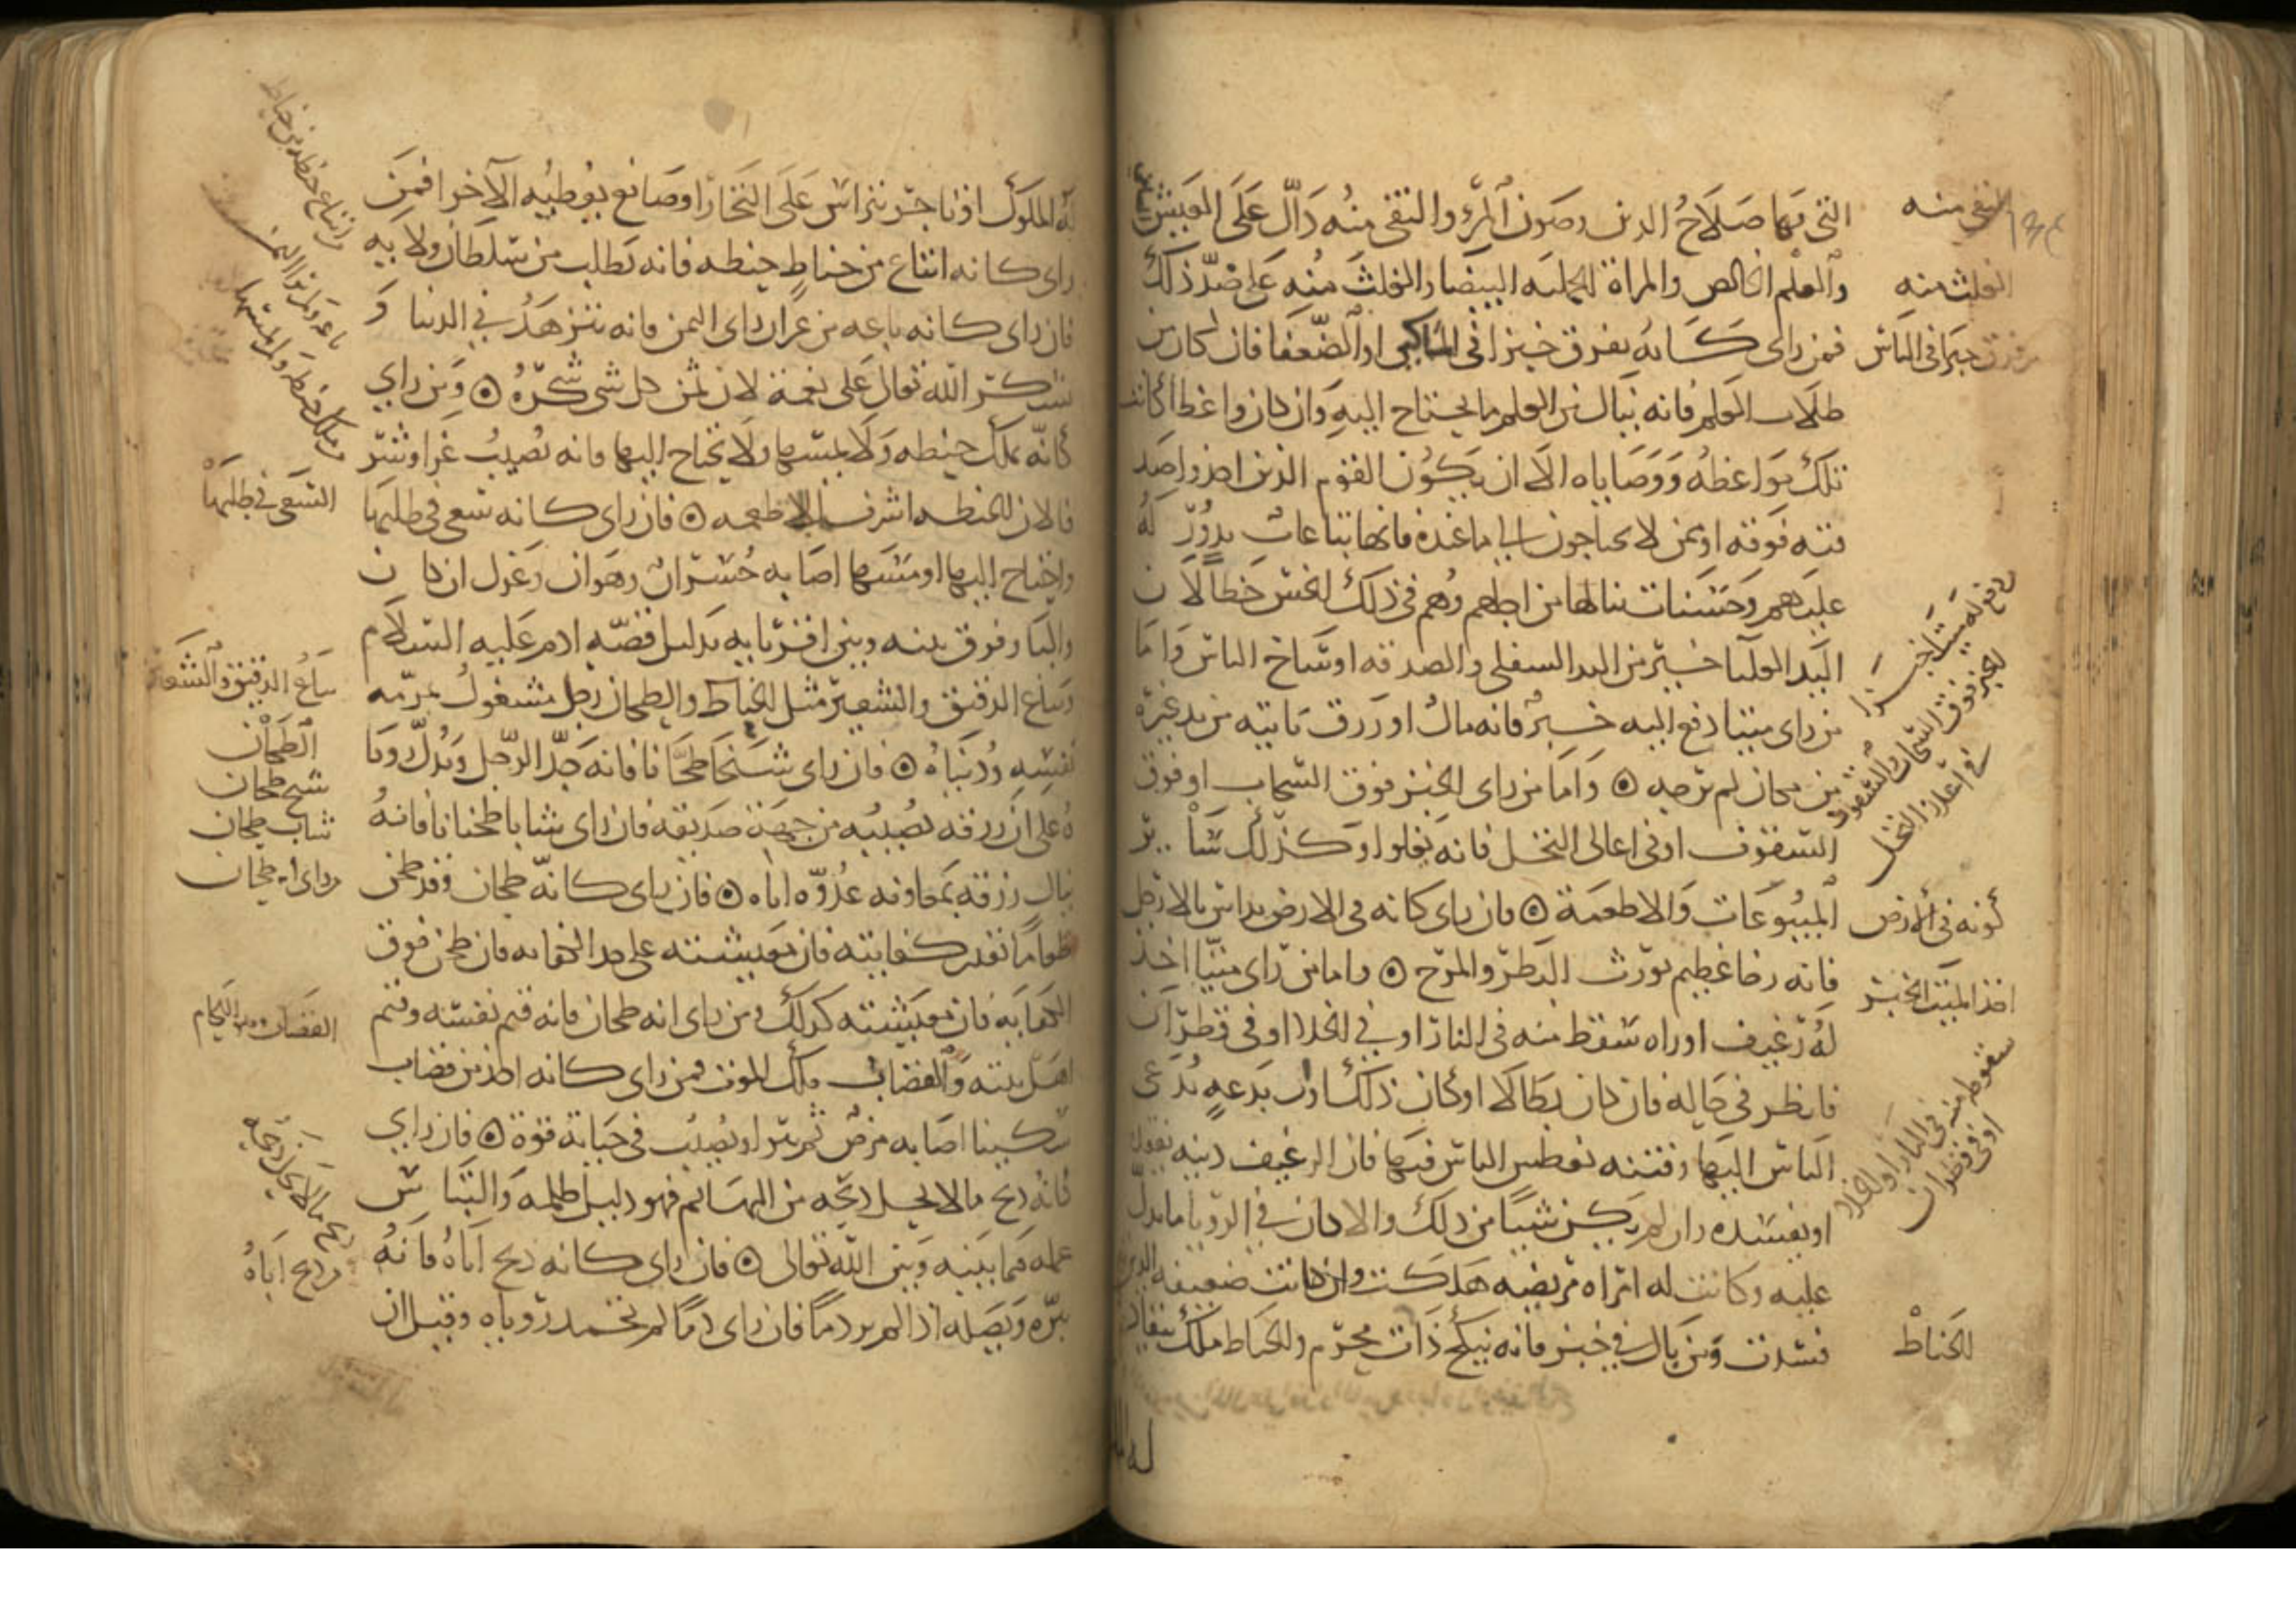 التي بها صلاح الدين وصون المرء والنقي منه دال على العيش
والعلم الخالص والمراة الجميلة البيضا والغلث منه على ضد ذلك
فمن راى كانه يفرق خبزا في المساكين او الضعفا فان كان من
طلاب العلم فانه ينال من العلم ما يحتاج اليه وان كان واعظا كانت
تلك مواعظه ووصاياه الا ان يكون القوم الذين اخذوا صد
قته فوقه او ممن لا يحتاجون الى ما عنده فانها تباعات
عليهم وحسنات ينالها من اجلهم وهم في ذلك اخس حظا لان
اليد العليا خير من اليد السفلى والصدقة اوساخ الناس واما
من راى ميتا دفع اليه خبز فانه مال او رزق ياتيه من يد غيره
من مكان لم يرجه ۞ واما من راى الخبز فوق السحاب او فوق
السقوف او في اعالى النخل فانه يغلوا وكذلك سائر
المبيوعات والاطعمة ۞ فان راى كانه في الارض يداس بالارجل
فانه رخا عظيم يورث البطر والمرح ۞ واما من راى ميتا اخذ
له رغيف او راه سقط منه في النار او في الخلا او في قطران
فانظر في حاله فان كان بطالا او كان ذلك بدعه يدعى
الناس اليها وفتنه يغطس الناس فيها فان الرغيف دينه يفقده
او يفسده وان لم يكن شيا من ذلك والا كان في الرويا ما يدل
عليه وكانت له امراه مريضه هلكت وان كانت ضعيفه الدين
فسدت ومن بال في خبز فانه ينكح ذات محرم والحناط ملك
النقي منه
الغلث منه
من فرق خبزا في الناس
دفع له ميت خبزا
الخبز فوق السحاب والسقوف
في اعلا النخل
كونه في الارض
اخذ الميت الخبز
سقوطه منه في النار او الخلا
او في قطران
الحناط
له الملوك
له الملوك او تاجر يتراس على التجار او صانع يعطيه الاخر افمن
راى كانه ابتاع من حناط حنطه فانه يطلب من سلطان ولايه
فان راى كانه باعه من غير ان راى الثمن فانه يتزهد في الدنيا و
يشكر الله تعالى على نعمه لان ثمن كل شي شكره ۞ ومن راى
كانه يملك حنطه ولا يمسها ولا يحتاج اليها فانه يصيب عزا وشر
فا لان الحنطه اشرف الاطعمه ۞ فان راى كانه سعى في طلبها
واحتاج اليها او مسها اصابه خسران وهوان وعزل ان كان
واليا وفرق بينه وبين اقربايه بدليل قصه ادم عليه السلام
وبياع الدقيق والشعير مثل الحناط والطحان رجل مشغول بمرمه
نفسه ودنياه ۞ فان راى شيخا طحانا فانه جد الرجل ويدل رويا
ه على ان رزقه يصيبه من جهه صديقه فان راى شابا طحانا فانه
ينال رزقه بمعاونه عدوه اياه ۞ فان راى كانه طحان وقد طحن
طعاما بقدر كفايته فان معيشته على حد الكفايه فان طحن فوق
الكفايه فان معيشته كذلك ومن راى انه طحان فانه قيم نفسه وقيم
اهل بيته والقصاب ملك الموت فمن راى كانه اخذ من قصاب
سكينا اصابه مرض ثم برا ويصيب في حياته قوة ۞ فان راى
كانه ذبح مالا يحل ذبحه من البهائم فهو دليل ظلمه والتباس
عمله فيما بينه وبين الله تعالى ۞ فان راى كانه ذبح اباه فانه
يبره ويصله اذا لم ير دما فان راى دما لم تحمد روياه وقيل ان
من ابتاع حنطه من حناط
باعه ولم ير الثمن
من ملك حنطه ولم يمسها
السعى في طلبها
بياع الدقيق والشعير
الطحان
شيخ طحان
شاب طحان
من راى انه طحان
القصاب
ذبح ما لا يحل ذبحه
من ذبح اباه